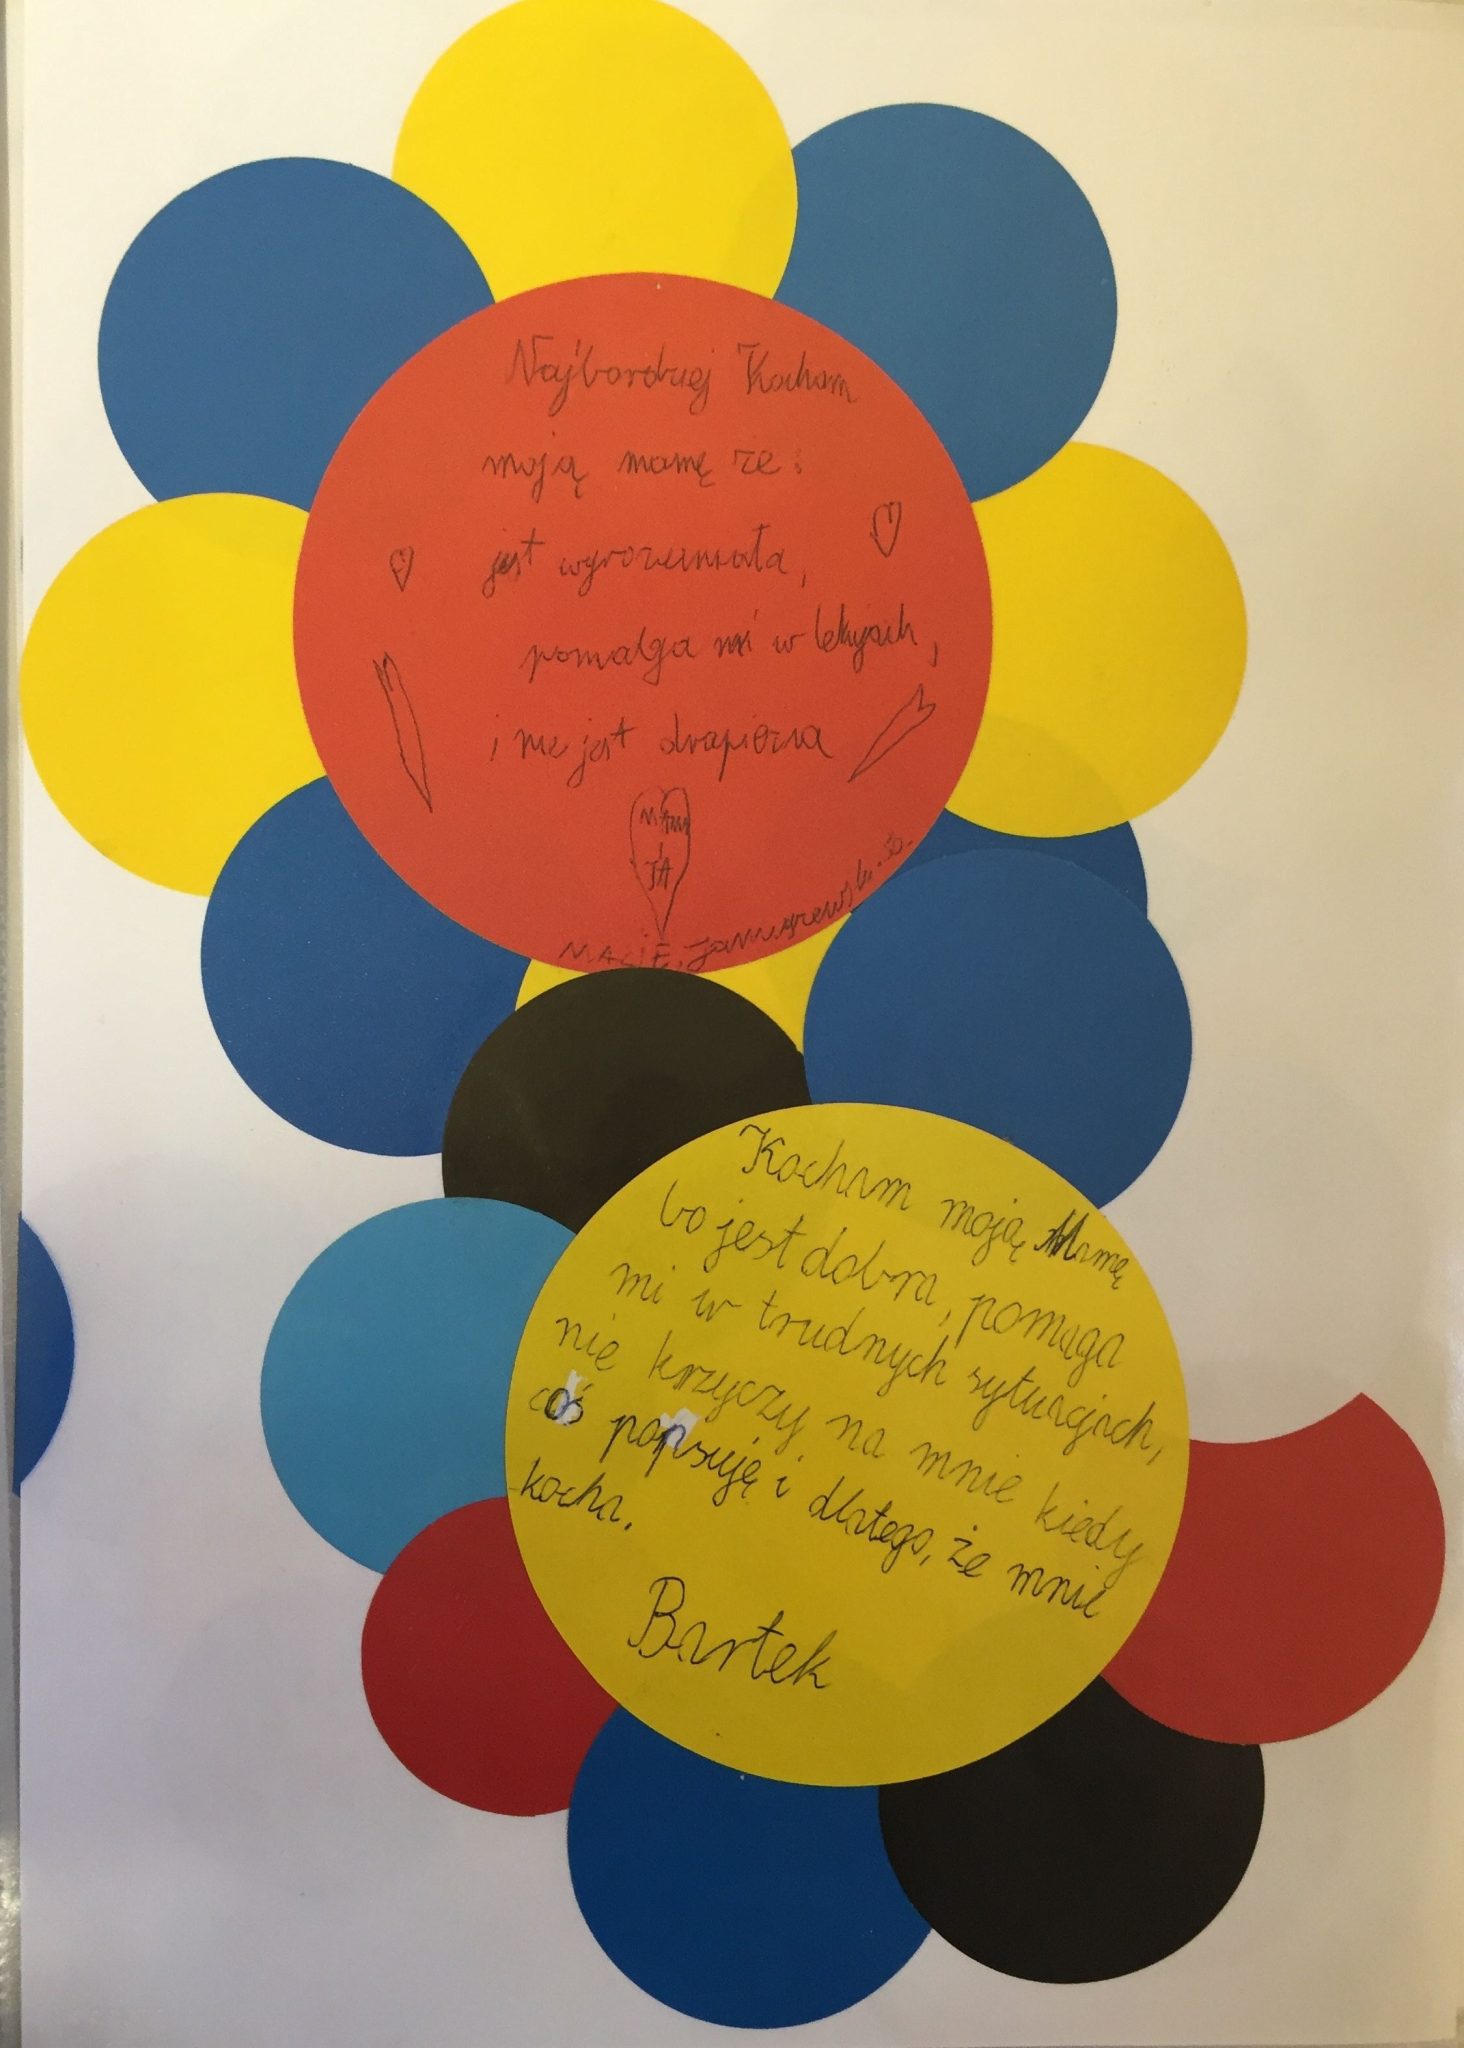 Najbardziej Kocham
moją mamę że:
jest wyrozumiała,
pomalga mi w lekcjach,
i nie jest drapieżna
MAMA
JA
MACIE. Januszewski. B.
Kocham moją Mamę
bo jest dobra, pomaga
mi w trudnych sytuacjach,
nie krzyczy na mnie kiedy
coś popsuję i dlatego, że mnie
kocha.
Bartek